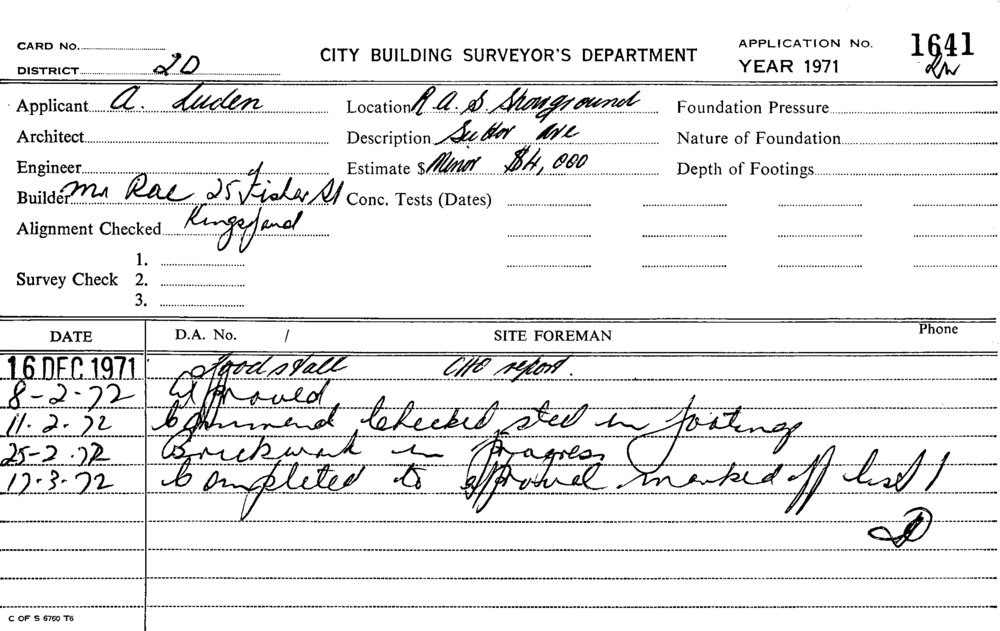 CARD No.
CITY BUILDING SURVEYOR'S DEPARTMENT
APPLICATION No. 1641
DISTRICT 2D
YEAR 1971
Applicant A. Luden
Location R.A.S. Showground
Foundation Pressure
Architect
Description Suttor Ave
Nature of Foundation
Engineer
Estimate $ Minor $4,000
Depth of Footings
Builder Mr Rae 25 Fisher St
Conc. Tests (Dates)
Alignment Checked Kingsford
Survey Check
1.
2.
3.
DATE D.A. No. / SITE FOREMAN Phone
16 DEC 1971 Food stall CHO report.
8-2-72 Approved
11.2.72 Commenced Checked steel in footings
25-2.72 Brickwork in Progress
17-3-72 Completed to approval marked off list 1
C OF S 6760 T6